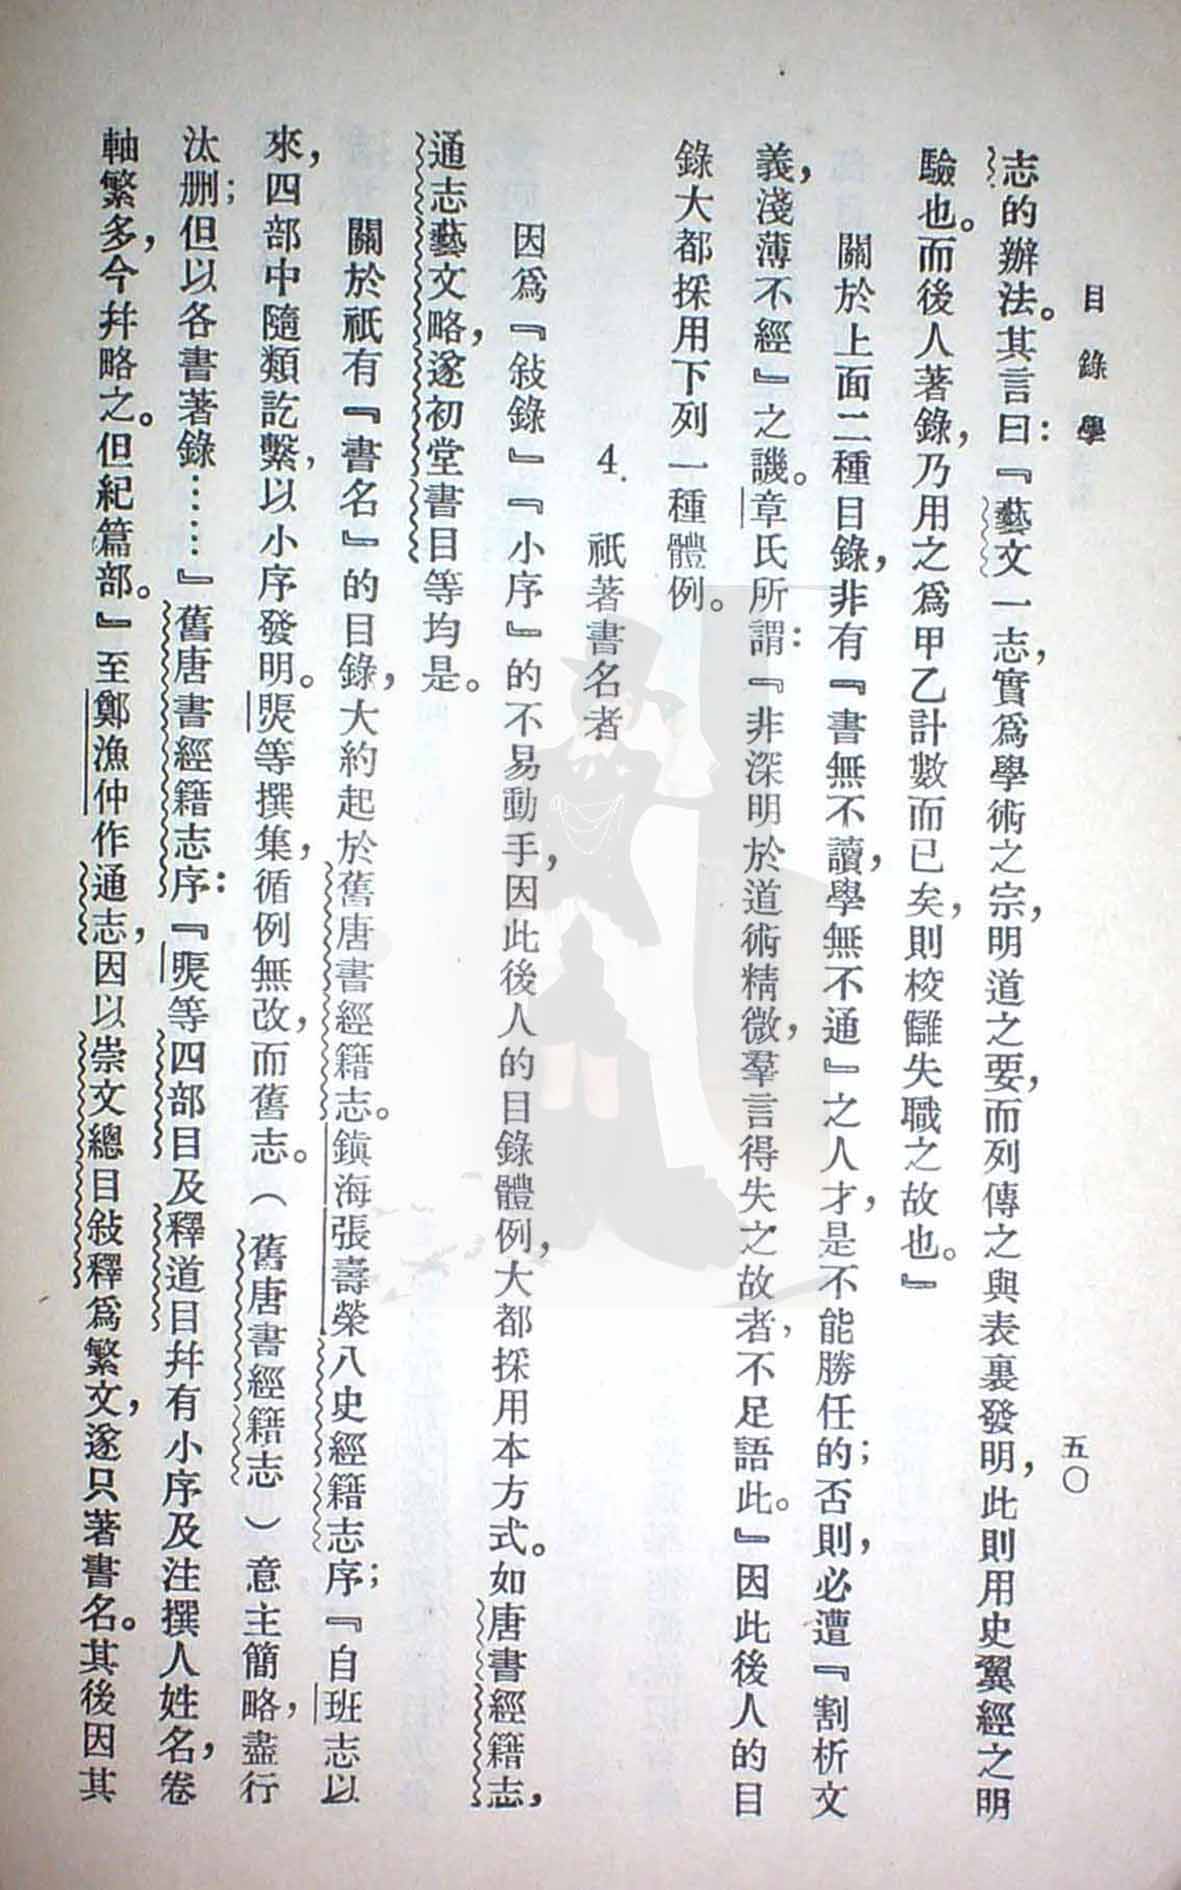 目錄學
五〇
志的辦法。其言曰：『藝文一志，實爲學術之宗，明道之要，而列傳之與表裏發明，此則用史翼經之明
驗也。而後人著錄，乃用之爲甲乙計數而已矣，則校讎失職之故也。』
關於上面二種目錄，非有『書無不讀，學無不通』之人才，是不能勝任的；否則，必遭『割析文
義，淺薄不經』之譏。章氏所謂：『非深明於道術精微，羣言得失之故者，不足語此。』因此後人的目
錄大都採用下列一種體例。
4. 祇著書名者
因爲『敍錄』『小序』的不易動手，因此後人的目錄體例，大都採用本方式。如唐書經籍志，
通志藝文略，遂初堂書目等均是。
關於祇有『書名』的目錄，大約起於舊唐書經籍志。鎮海張壽榮八史經籍志序；『自班志以
來，四部中隨類訖繫，以小序發明。煚等撰集，循例無改，而舊志。（舊唐書經籍志）意主簡略，盡行
汰刪；但以各書著錄……』舊唐書經籍志序：『煚等四部目及釋道目幷有小序及注撰人姓名，卷
軸繁多，今幷略之。但紀篇部。』至鄭漁仲作通志，因以崇文總目敍釋爲繁文，遂只著書名。其後因其